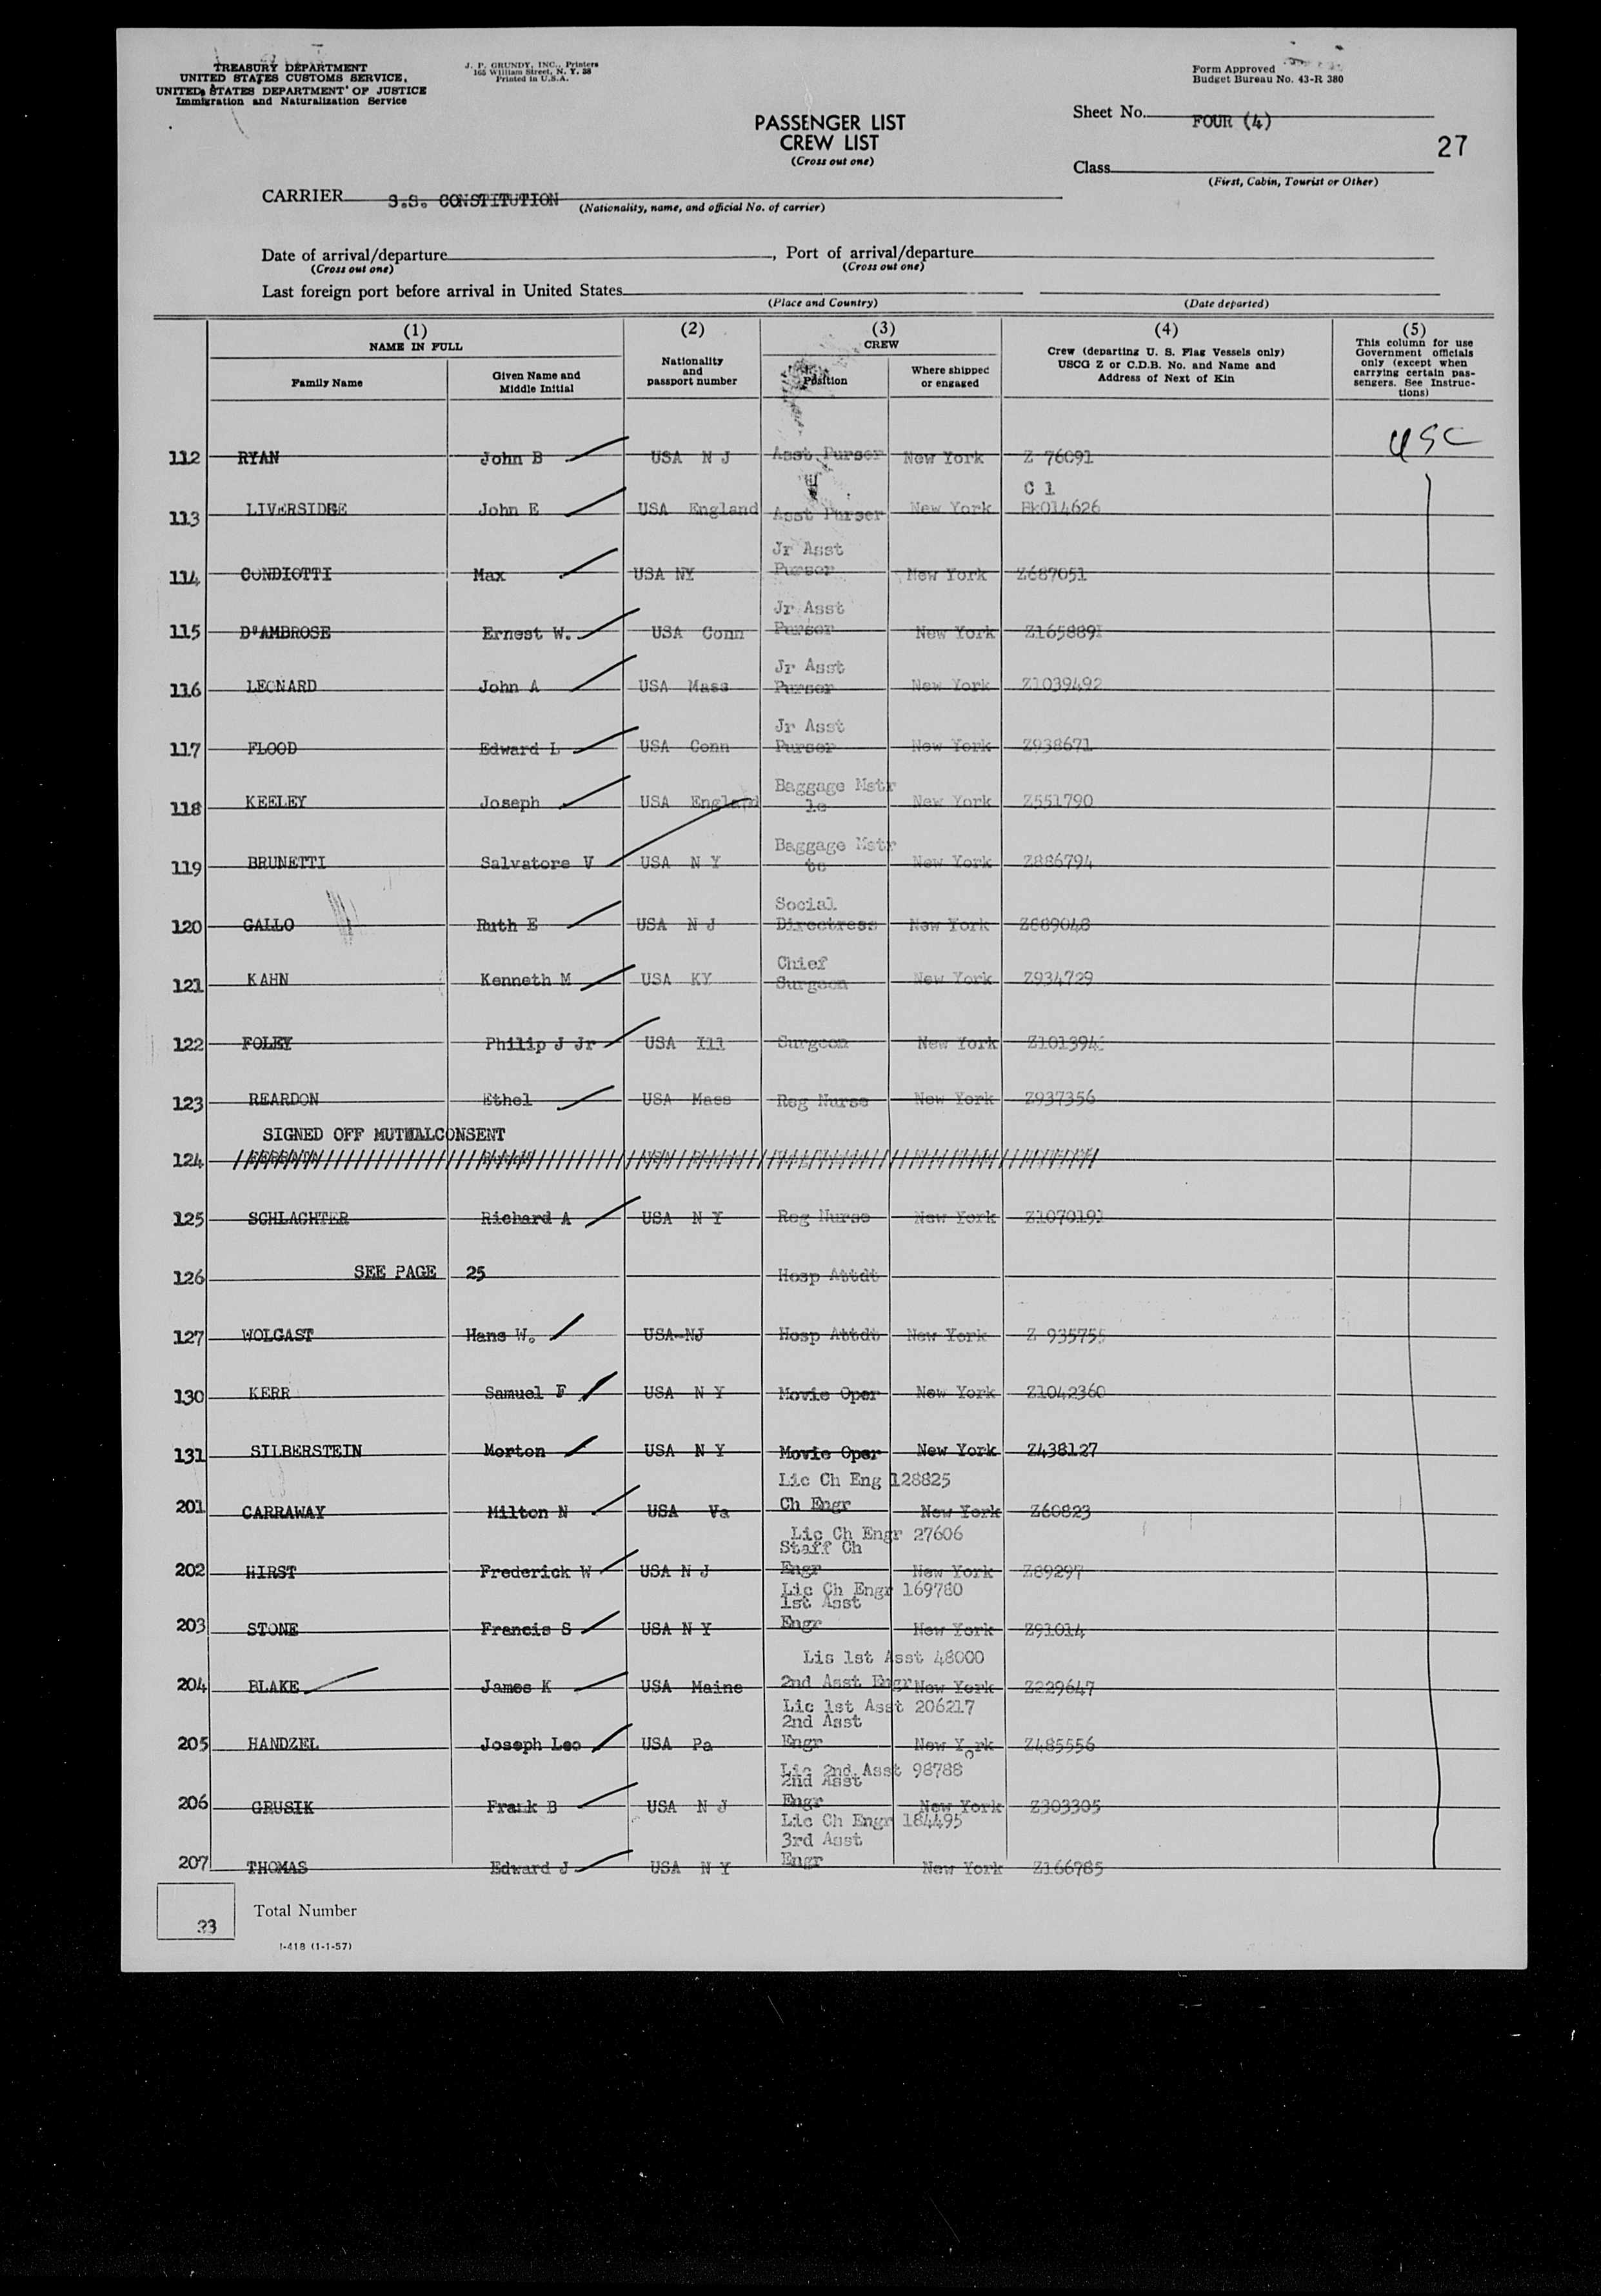 TREASURY DEPARTMENT
UNITED STATES CUSTOMS SERVICE,
UNITED STATES DEPARTMENT OF JUSTICE
Immigration and Naturalization Service
J. P. GRUNDY, INC., Printers
165 William Street, N. Y. 38
Printed in U.S.A.
Form Approved
Budget Bureau No. 43-R 380
PASSENGER LIST
CREW LIST
(Cross out one)
Sheet No. FOUR (4)
27
Class
(First, Cabin, Tourist or Other)
CARRIER S.S. CONSTITUTION
(Nationality, name, and official No. of carrier)
Date of arrival/departure , Port of arrival/departure
(Cross out one) (Cross out one)
Last foreign port before arrival in United States
(Place and Country) (Date departed)
(1) NAME IN FULL
Family Name
Given Name and Middle Initial
(2)
Nationality and passport number
(3) CREW
Position
Where shipped or engaged
(4)
Crew (departing U. S. Flag Vessels only)
USCG Z or C.D.B. No. and Name and
Address of Next of Kin
(5)
This column for use
Government officials
only (except when
carrying certain pas-
sengers. See Instruc-
tions)
112 RYAN John B USA N J Asst Purser New York Z 76091 USC
C 1
113 LIVERSIDGE John E USA England Asst Purser New York Bk014626
Jr Asst
114 CONDIOTTI Max USA NY Purser New York Z687051
Jr Asst
115 D'AMBROSE Ernest W. USA Conn Purser New York Z165889
Jr Asst
116 LEONARD John A USA Mass Purser New York Z1039492
Jr Asst
117 FLOOD Edward L USA Conn Purser New York Z938671
Baggage Mstr
118 KEELEY Joseph USA England New York Z551790
Baggage Mstr
119 BRUNETTI Salvatore V USA N Y New York Z886794
Social
120 GALLO Ruth E USA N J Directress New York Z889048
Chief
121 KAHN Kenneth M USA KY Surgeon New York Z934729
122 FOLEY Philip J Jr USA Ill Surgeon New York
123 REARDON Ethel USA Mass Reg Nurse New York Z937356
SIGNED OFF MUTUALCONSENT
124
125 SCHLACHTER Richard A USA N Y Reg Nurse New York Z1070191
126 SEE PAGE 25 Hosp Attdt
127 WOLGAST Hans W. USA-NJ Hosp Attdt New York Z 935755
130 KERR Samuel F USA N Y Movie Oper New York Z1042360
131 SILBERSTEIN Morton USA N Y Movie Oper New York Z438127
Lic Ch Eng 128825
201 CARRAWAY Milton N USA Va Ch Engr New York Z60823
Lic Ch Engr 27606
Staff Ch
202 HIRST Frederick W USA N J Engr New York Z89297
Lic Ch Engr 169780
1st Asst
203 STONE Francis S USA N Y Engr New York Z91014
Lis 1st Asst 48000
204 BLAKE James K USA Maine 2nd Asst Engr New York Z229647
Lic 1st Asst 206217
2nd Asst
205 HANDZEL Joseph Leo USA Pa Engr New York Z485556
Lic 2nd Asst 98788
2nd Asst
206 GRUSIK Frank B USA N J Engr New York Z303305
Lic Ch Engr 184495
3rd Asst
207 THOMAS Edward J USA N Y Engr New York Z166785
23 Total Number
I-418 (1-1-57)